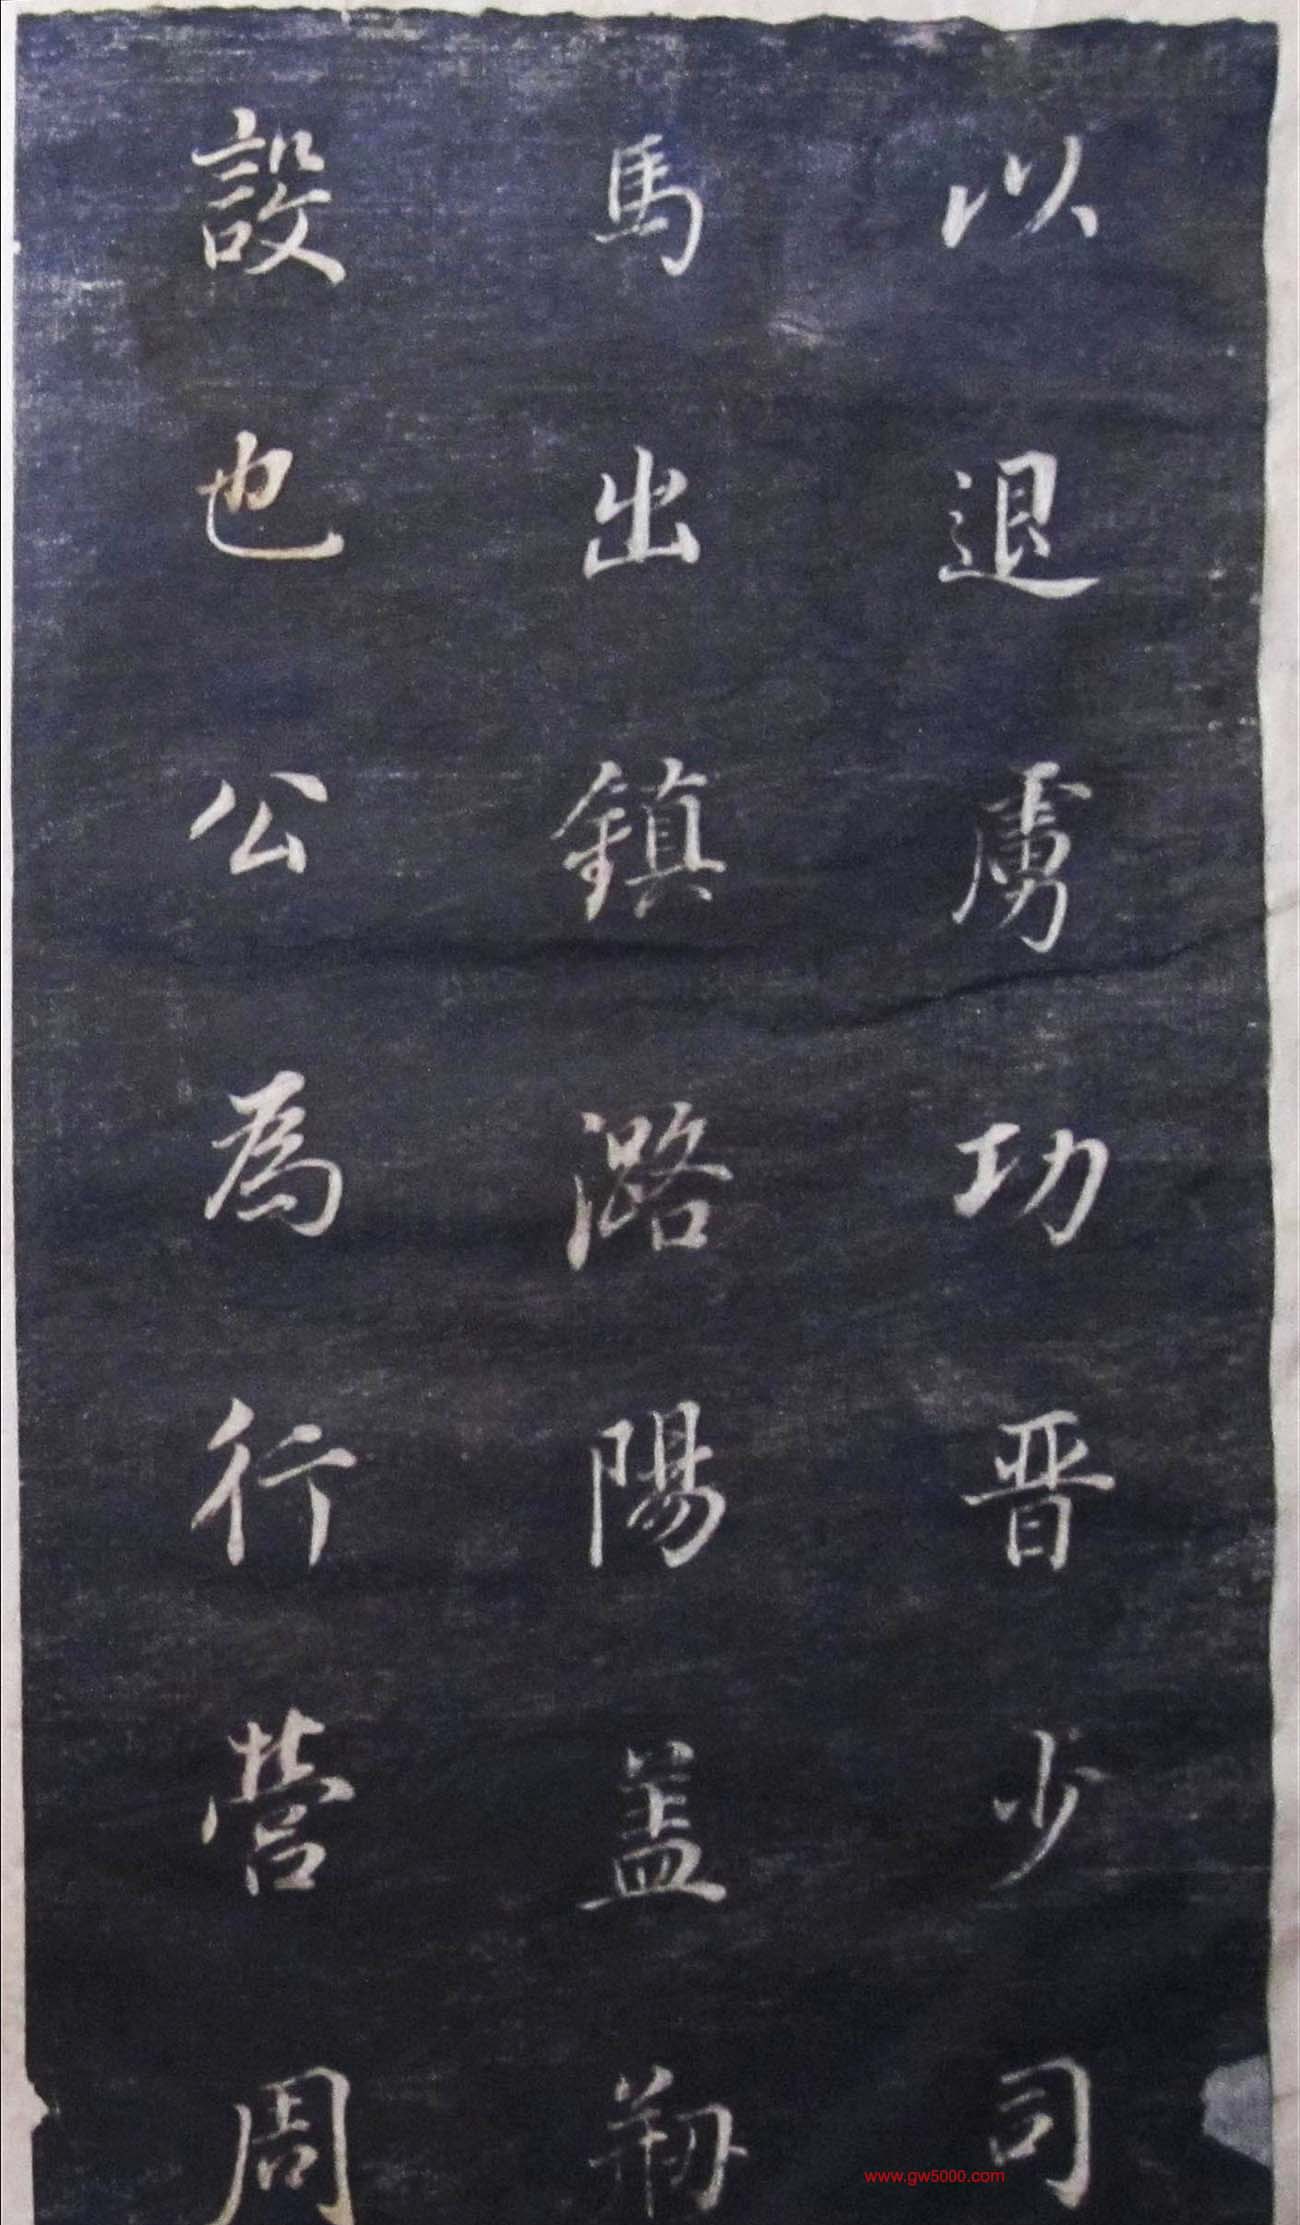 以退虜功晋少司
馬出鎮潞陽盖剏
設也公為行營周
www.gw5000.com